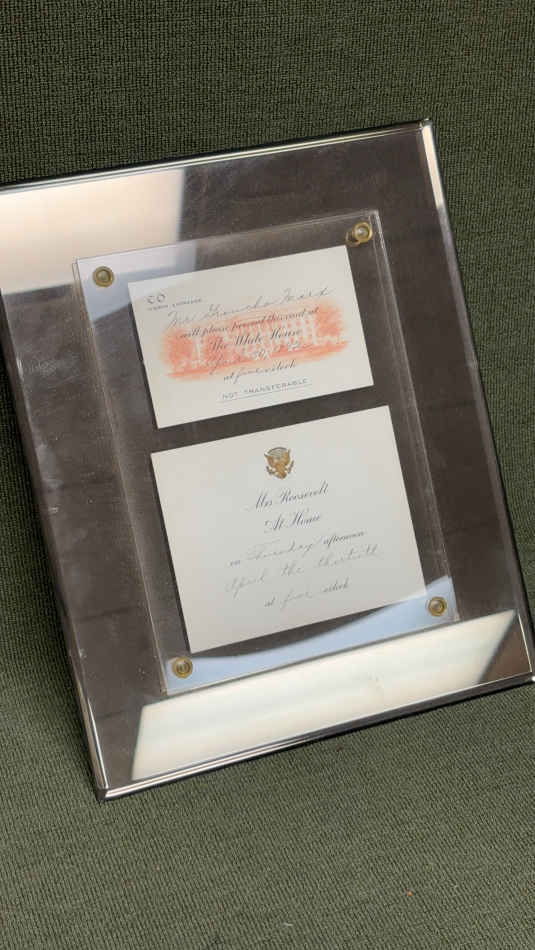 Mr. Groucho Marx
will please present this card at
The White House
April 30, 1942
at five o'clock
NOT TRANSFERABLE
Mrs. Roosevelt
At Home
on Thursday afternoon
April the thirtieth
at five o'clock